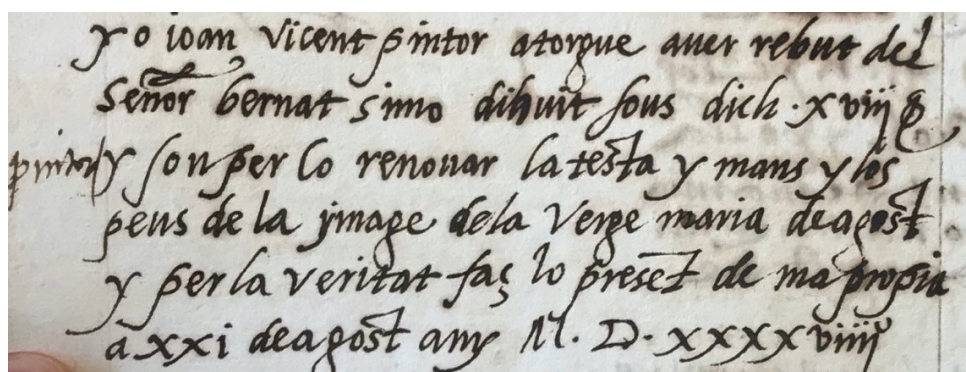 yo ioan vicent pintor atorgue auer rebut del
Señor bernat simo dihuit sous dich · xviij ẞ
pintor
y son per lo renouar la testa y mans y los
peus de la ymage de la verge maria de agost
y per la veritat faç lo preset de ma propia
a xxi de agost any M. D. xxxxviiij